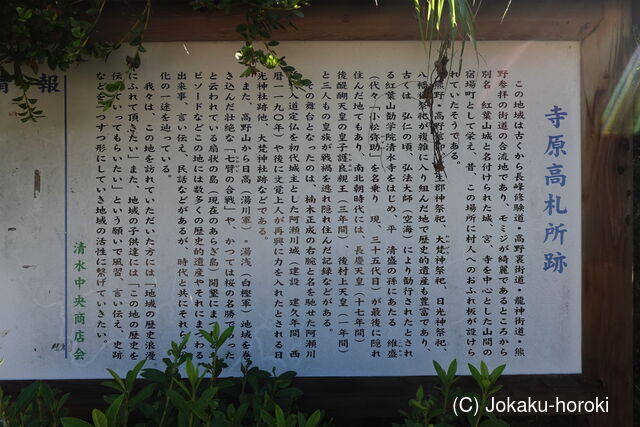 寺原高札所跡
この地域は古くから長峰修験道・高野裏街道・龍神街道・熊
野参拝の街道の合流地であり、モミジが綺麗であるところから
別名、紅葉山城と名付けられた城、宮、寺を中心とした山間の
宿場町として栄え、昔、この場所に村人へのおふれ板が設けら
れていたそうである。
熊野・高野
八幡 祭祀が複雑に入り組んだ地で歴史的遺産も豊富であり、
古くは、弘仁の頃、弘法大師(空海)により勧行されたとされ
る紅葉山勧学院清水寺をはじめ、平 清盛の孫にあたる 維盛
(代々「小松弥助」を名乗り 現、三十五代目)が最後に隠れ
住んだ地でもあり、南北朝時代には、長慶天皇(十七年間)
後醍醐天皇の皇子護良親王(三年間)、後村上天皇(一年間)
と三人もの皇族が戦禍を逃れ隠れ住んだ記録などがある。
その舞台となったのは、楠木正成の右腕と名を馳せた阿瀬川
入道定仏を初代城主とした阿瀬川城(建設 建久年間 西
暦一一九〇年)や後に文覚上人が再興に力を入れたとされる日
光神社跡他、大梵神社跡などである。
また、高野山から日高(湯川軍)・湯浅(白樫軍)地域を巻
き込んだ壮絶な「七臂の合戦」や、かつては桜の名勝であった
と云われている扇状の島(現在のあらぎ島)開墾にまつわるエ
ピソードなどこの地には数多くの歴史的遺産やそれにまつわる
出来事、言い伝え、民話などがあるが、時代と共にそれ
化の一途を辿っている。
我々は、この地を訪れていただいた方には「地域の歴史浪漫
にふれて頂きたい」また、地域の子供達には「この地の歴史を
伝えていってもらいたい」という願いで風習、言い伝え、史跡
などを一つずつ形にしていき地域の活性に繋げていきたい。
清水中央商店会
情 報
(C) Jokaku-horoki